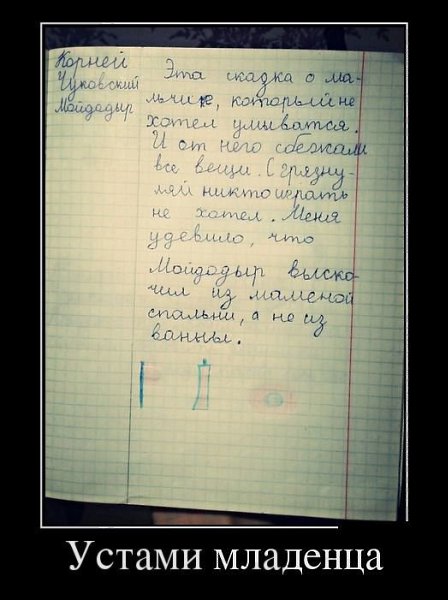 Корней
Чуковский
Мойдадыр
Эта скадка о ма-
льчике, который не
хотел умыватся.
И от него сбежали
все вещи. С грязну-
ляй никто играть
не хотел. Меня
удевило, что
Мойдодыр выско-
чил из маменой
спальни, а не из
ванны.
Устами младенца